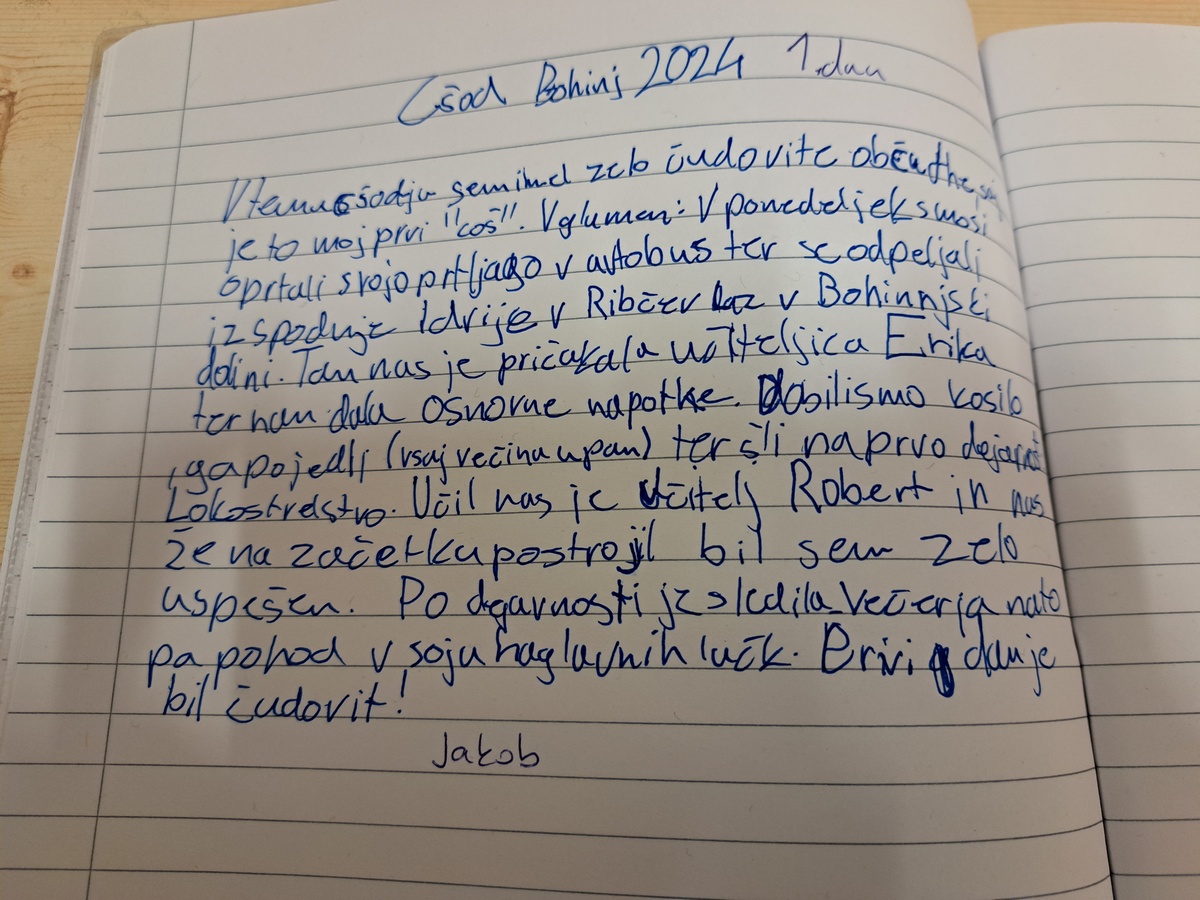 Čšod Bohinj 2024 1. dan
V temu čšodju sem imel zelo čudovite občutke saj
je to moj prvi "coš". Vglumen: V ponedeljek smo si
oprtali svojo prtljago v avtobus ter se odpeljali
iz spodnje Idrije v Ribčev Laz v Bohinjski
dolini. Tam nas je pričakala učiteljica Erika
ter nam dala osnovne napotke. Dobili smo kosilo
, ga pojedli (vsaj večina upam) ter šli na prvo dejavnost
Lokostrelstvo. Učil nas je učitelj Robert in nas
že na začetku postrojil bil sem zelo
uspešen. Po dejavnosti je sledila večerja nato
pa pohod v soju naglavnih lučk. Prvi dan je
bil čudovit!
Jakob